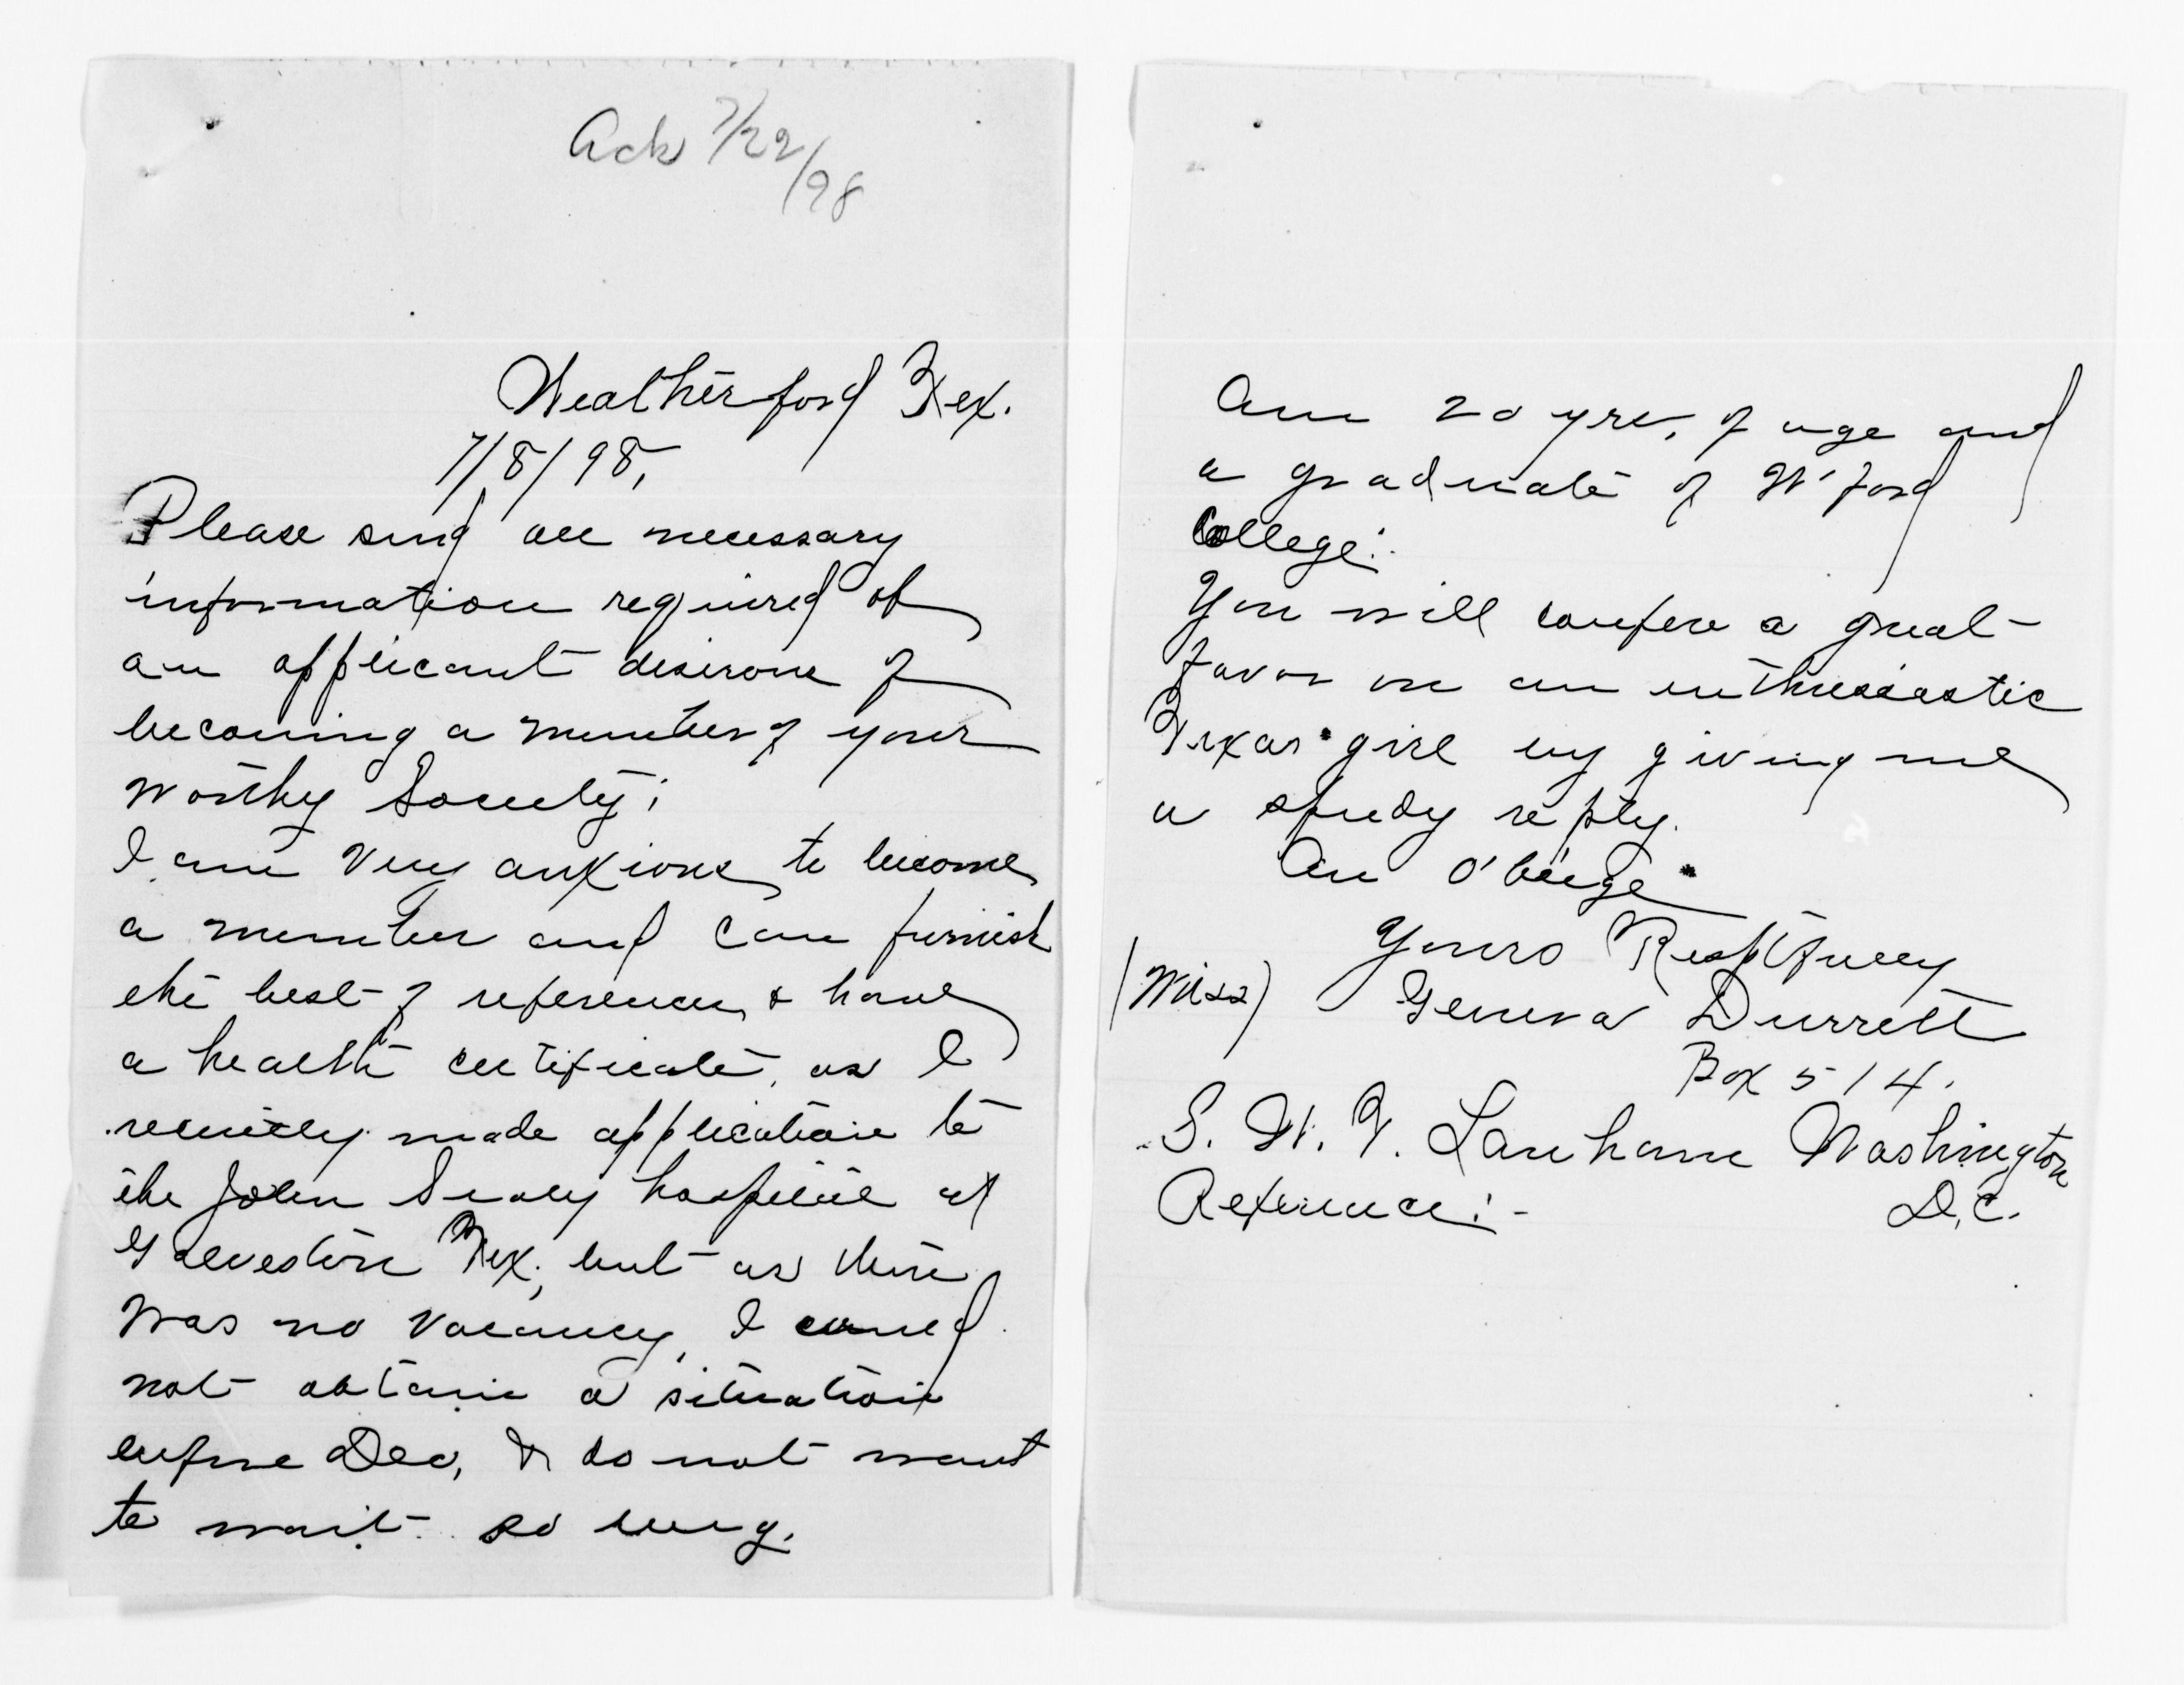 Ack 7/22/98
Weatherford Tex.
7/8/98,
Please send all necessary
information required of
an applicant desirous of
becoming a member of your
worthy Society;
I am very anxious to become
a member and can furnish
the best of references & have
a health certificate, as I
recently made application to
the John Sealy hospital at
Galveston Tex; but as there
was no vacancy, I could
not obtain a situation
before Dec, & do not want
to wait so long.
Am 20 yrs. of age and
a graduate of W'ford
College:
You will confer a great
favor on an enthusiastic
Texas girl by giving me
a speedy reply.
An O'blige
Yours Resptfully
(Miss) Geneva Durrett
Box 514.
S. W. T. Lanham Washington
Reference:- D.C.